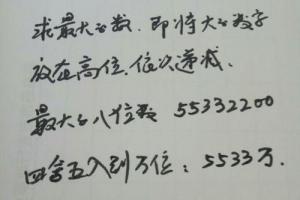 求最大的数.即将大的数字
放在高位,依次递减.
最大的八位数 55332200
四舍五入到万位:5533万.